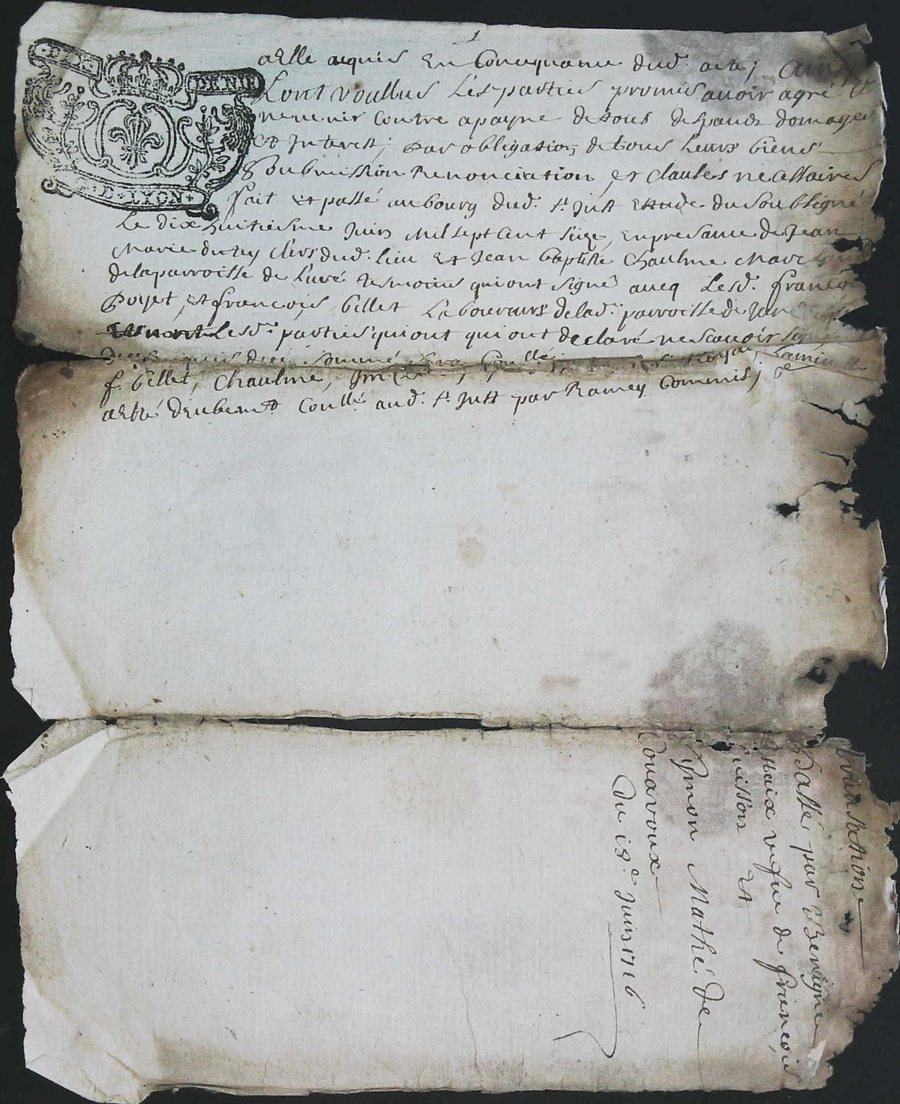 DEN
LYON
aelle aquis en concequance dud. acte, ainsy
Lont voullus Les parties promis avoir agré &
ne venir contre a payne de tous despands domages
et Interest, par obligation de tous Leurs biens
Soubmission Renonciation, et clauses necessaires
fait et passé au bourg dud. St Just Estude du soubsigné
Le dix huitiesme Juin Mil sept cent seize, en presance de Jean
Marie clerc dud. Lieu et Jean baptiste chaulme Marchand
de la parroisse de Luré tesmoins qui ont signé avecq Lesd. françois
poyet, et francois, billet Laboureurs de lad. parroisse de
Lesd. parties qui ont qui ont declaré ne scavoir
f. billet, chaulme,
aesté deubemt Coullé aud. St Just par Ramey Commis,
Passé par Benigne
vefve de francois
et
Symon Mathé de
Couavoux
Du 18e Juin 1716